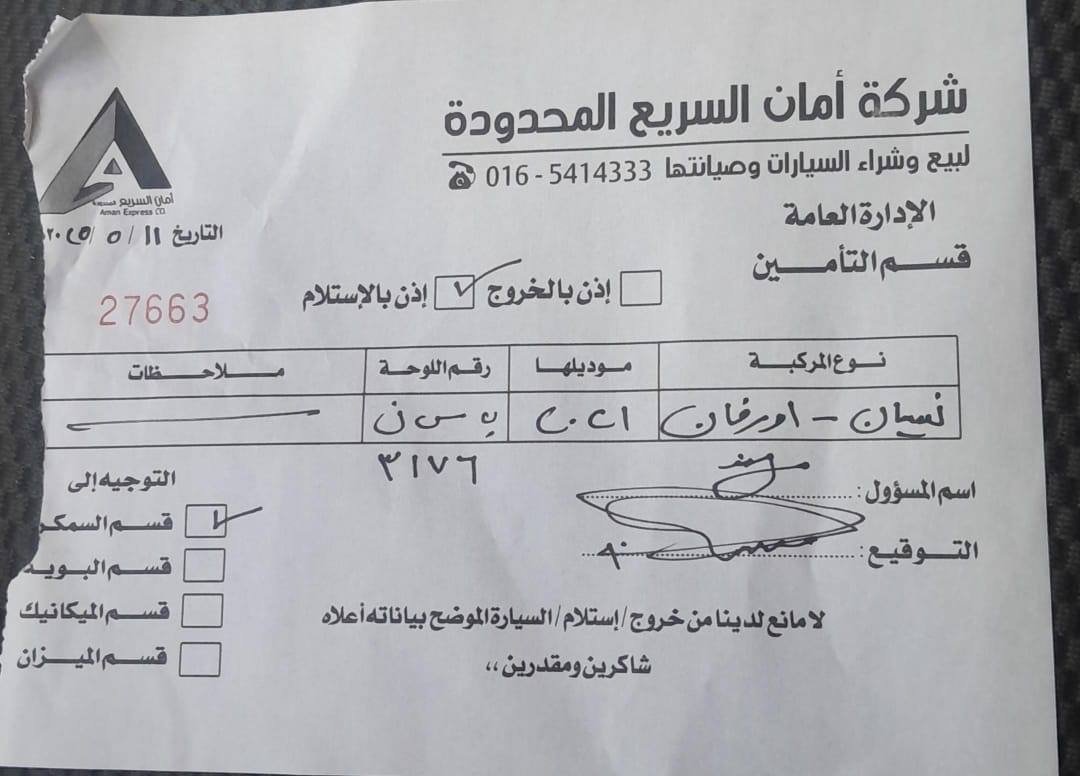 شركة أمان السريع المحدودة
لبيع وشراء السيارات وصيانتها 016 - 5414333
أمان السريع المحدودة
Aman Express CO.
الإدارة العامة
التاريخ ١١ / ٥ / ٢٠٢٥
قسم التأمين
إذن بالخروج إذن بالإستلام
27663
نوع المركبة موديلها رقم اللوحة ملاحظات
نيسان - اورفان ٢٠٢١ ب س ن
٣١٧٦
اسم المسؤول:
التوقيع:
التوجيه إلى
قسم السمكر
قسم البويه
قسم الميكانيك
قسم الميزان
لا مانع لدينا من خروج/إستلام/السيارة الموضح بياناته أعلاه
شاكرين ومقدرين ،،